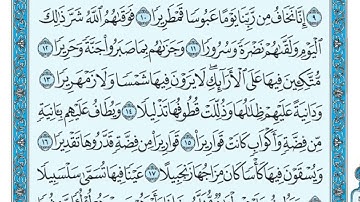 ٩ إِنَّا نَخَافُ مِن رَّبِّنَا يَوْمًا عَبُوسًا قَمْطَرِيرًا ١٠ فَوَقَىٰهُمُ ٱللَّهُ شَرَّ ذَٰلِكَ
ٱلْيَوْمِ وَلَقَّىٰهُمْ نَضْرَةً وَسُرُورًا ١١ وَجَزَىٰهُم بِمَا صَبَرُوا۟ جَنَّةً وَحَرِيرًا ١٢
مُّتَّكِـِٔينَ فِيهَا عَلَى ٱلْأَرَآئِكِ لَا يَرَوْنَ فِيهَا شَمْسًا وَلَا زَمْهَرِيرًا ١٣
وَدَانِيَةً عَلَيْهِمْ ظِلَٰلُهَا وَذُلِّلَتْ قُطُوفُهَا تَذْلِيلًا ١٤ وَيُطَافُ عَلَيْهِم بِـَٔانِيَةٍ
مِّن فِضَّةٍ وَأَكْوَابٍ كَانَتْ قَوَارِيرَا۠ ١٥ قَوَارِيرَا۟ مِن فِضَّةٍ قَدَّرُوهَا تَقْدِيرًا ١٦
وَيُسْقَوْنَ فِيهَا كَأْسًا كَانَ مِزَاجُهَا زَنجَبِيلًا ١٧ عَيْنًا فِيهَا تُسَمَّىٰ سَلْسَبِيلًا